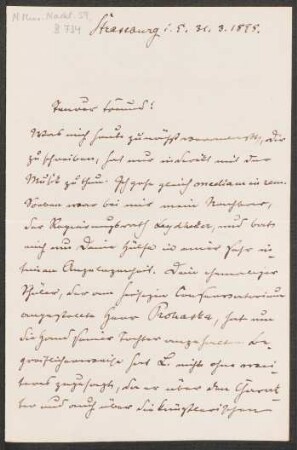 N. Mus. Nachl. 59,
B 734
Strassburg i. E. 31. 3. 1895.
Teurer Freund!
Was mich heute zunächst veranlasst, Dir
zu schreiben, hat nur indirekt mit der
Musik zu thun. Ich gehe gleich in mediam in rem.
war bei mir mein Nachbar,
der Regierungsrath und bat
mich um Deine Hülfe in einer sehr
Angelegenheit. Dein ehemaliger
Schüler, der am Leipziger Conservatorium
angestellte Herr Prohaska, hat um
die Hand seiner Tochter angehalten.
greiflicherweise hat L. nicht ohne wei-
teres zugesagt, da er über den Charak-
ter und auch über die künstlerischen